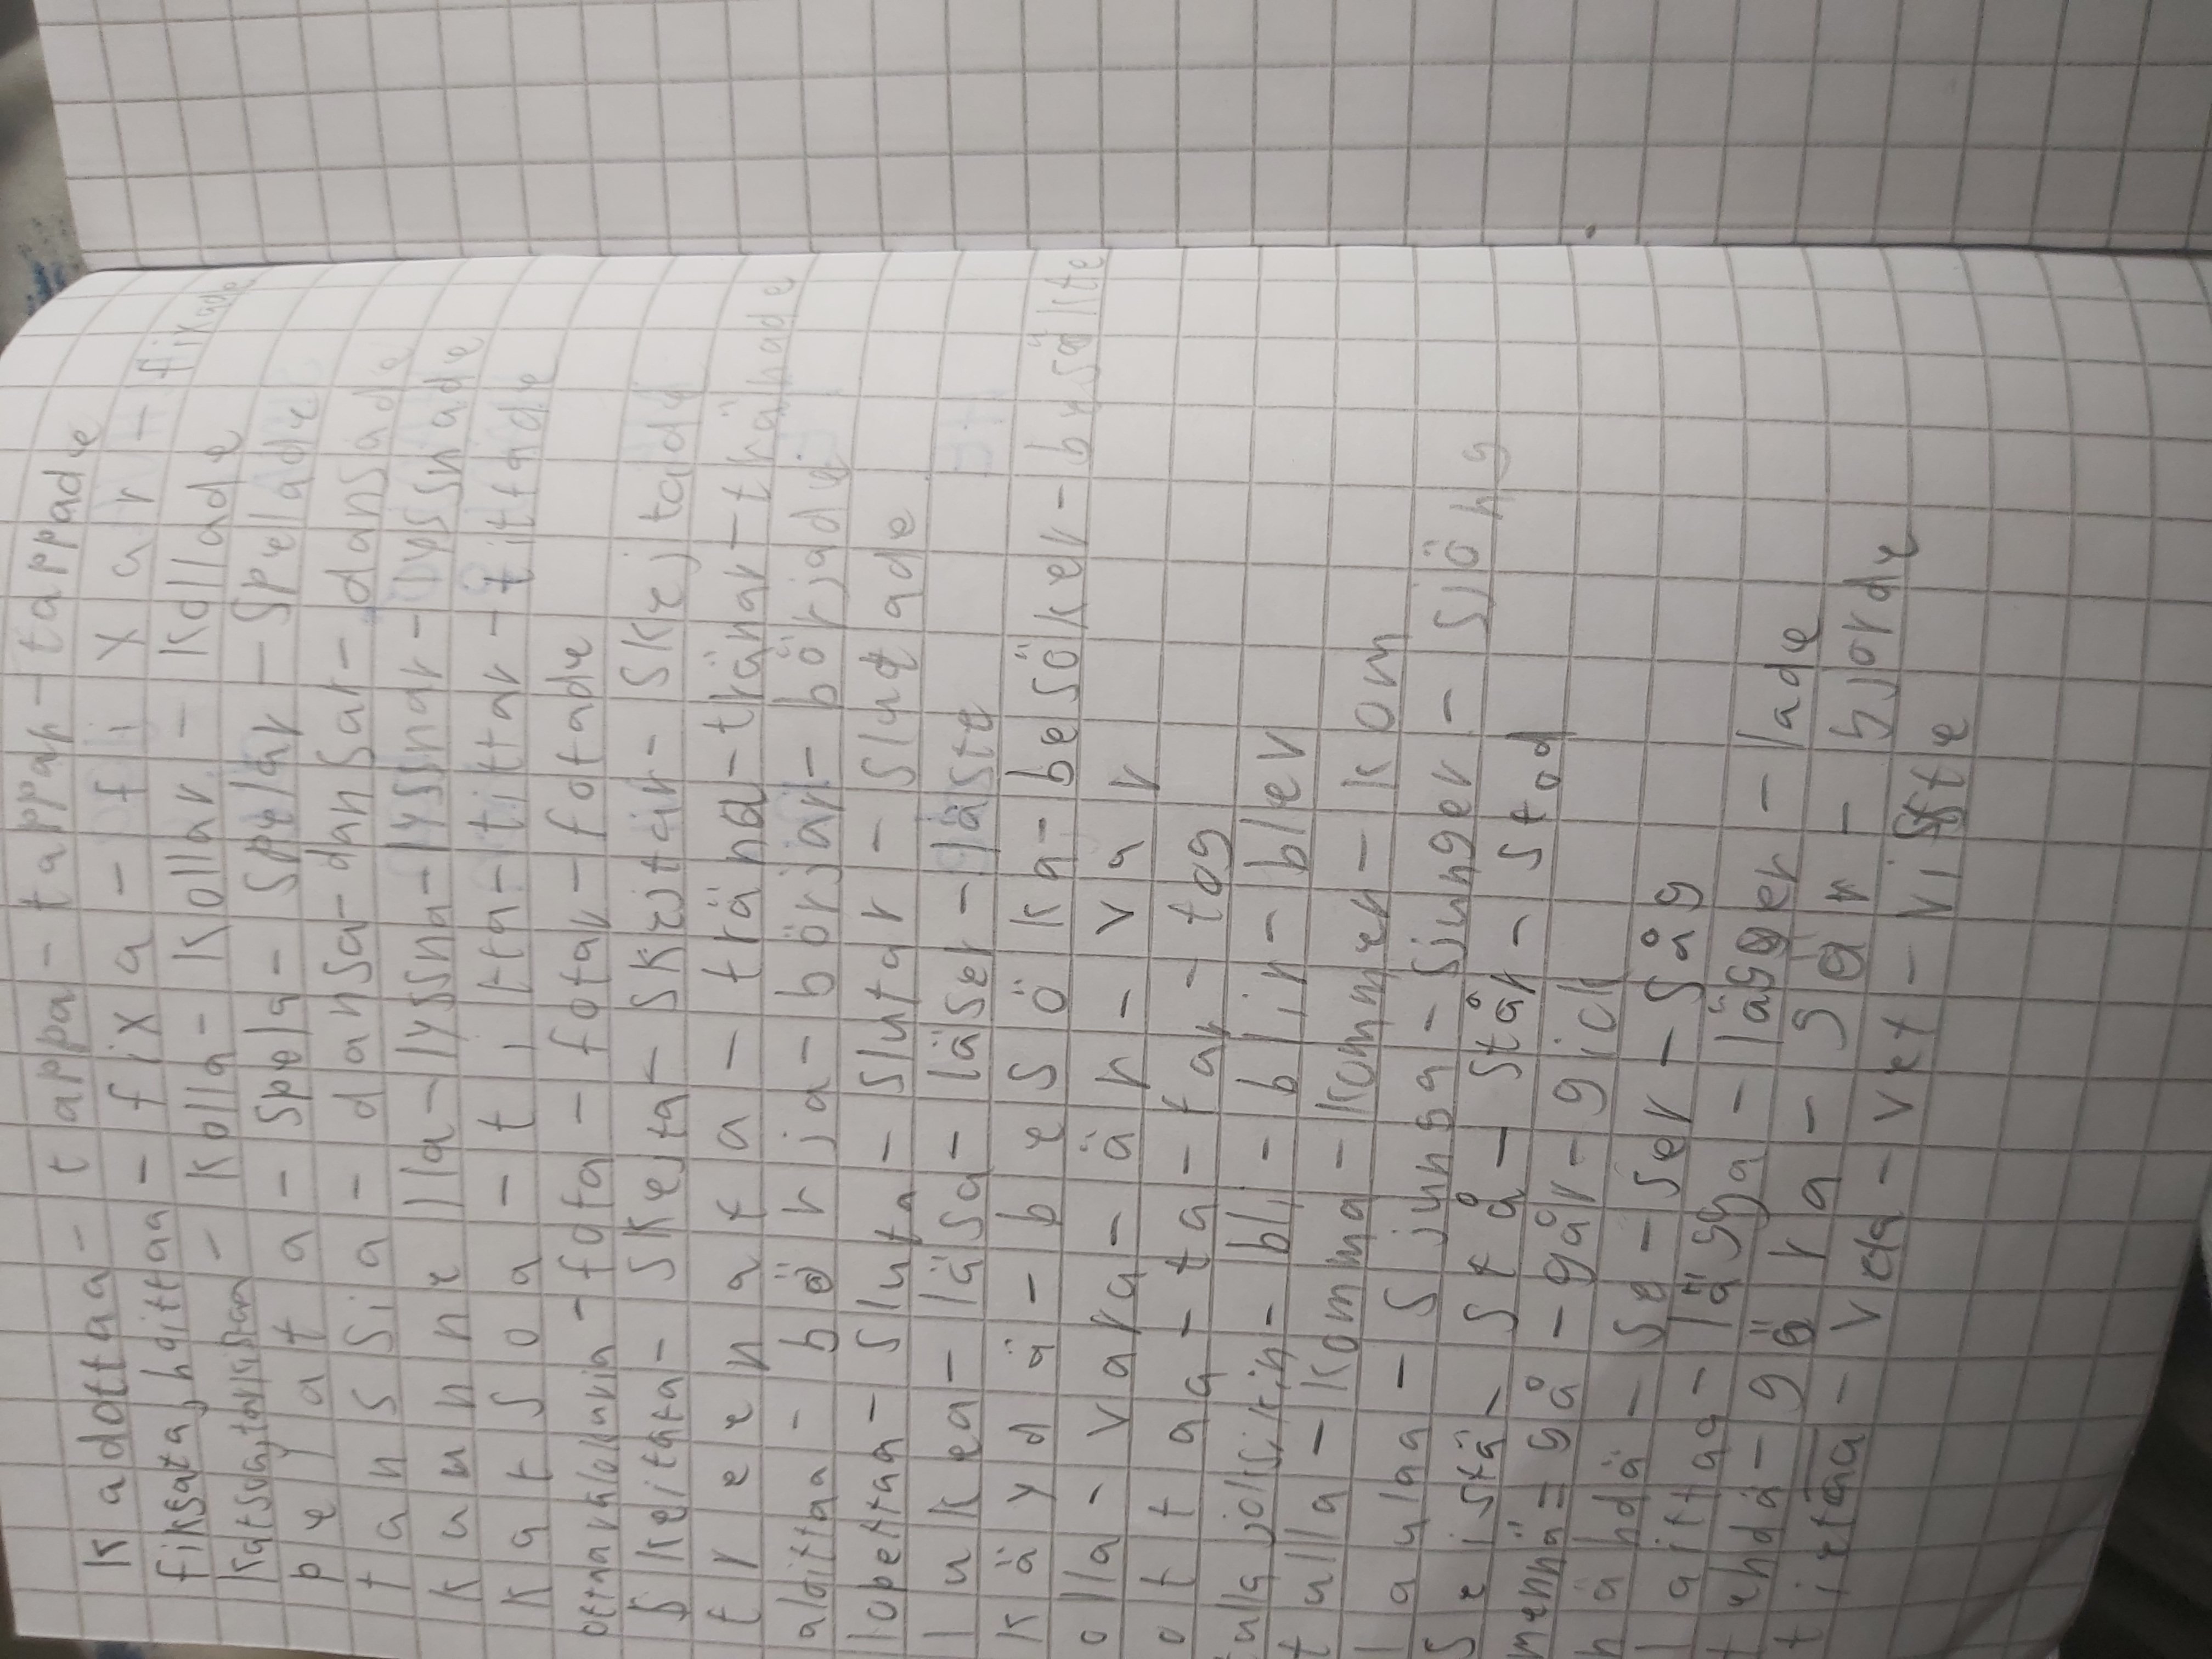 kadottaa - tappa - tappar - tappade
fiksata, hoittaa - fixa - fixar - fixade
katsoa, tarkistaa - kolla - kollar - kollade
pelata - spela - spelar - spelade
tanssia - dansa - dansar - dansade
kuunnella - lyssna - lyssnar - lyssnade
katsoa - titta - tittar - tittade
ottaa valokuvia - fota - fotar - fotade
skeitata - skejta - skejtar - skejtade
treenata - träna - tränar - tränade
aloittaa - börja - börjar - började
lopettaa - sluta - slutar - slutade
lukea - läsa - läser - läste
käydä - besöka - besöker - besökte
olla - vara - är - var
ottaa - ta - tar - tog
tulla joksikin - bli - blir - blev
tulla - komma - kommer - kom
laulaa - sjunga - sjunger - sjöng
seistä - stå - står - stod
mennä = gå - går - gick
nähdä - se - ser - såg
laittaa - lägga - lägger - lade
tehdä - göra - gör - gjorde
tietää - veta - vet - visste